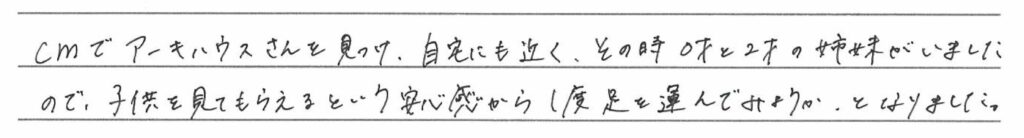 CMでアーキハウスさんを見つけ、自宅にも近く、その時0才と2才の姉妹がいました
ので、子供を見てもらえるという安心感から1度足を運んでみようか、となりました。